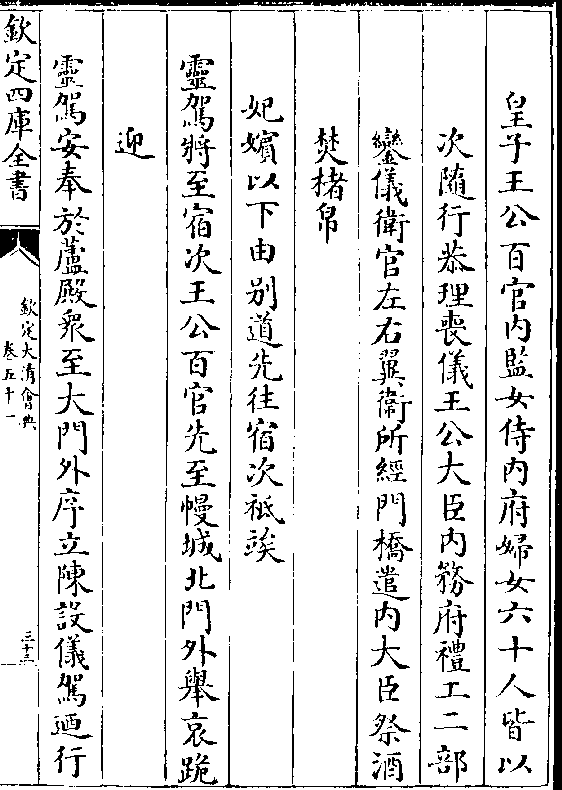 皇子王公百官内監女侍内府婦女六十人皆以
次隨行恭理喪儀王公大臣内務府禮工二部
鑾儀衛官左右翼衛所經門橋遣内大臣祭酒
焚楮帛
妃嬪以下由别道先往宿次祗竢
靈駕將至宿次王公百官先至幔城北門外舉哀跪
迎
靈駕安奉於蘆殿衆至大門外序立陳設儀駕廵行
欽定四庫全書
欽定大清會典
卷五十一
三十三